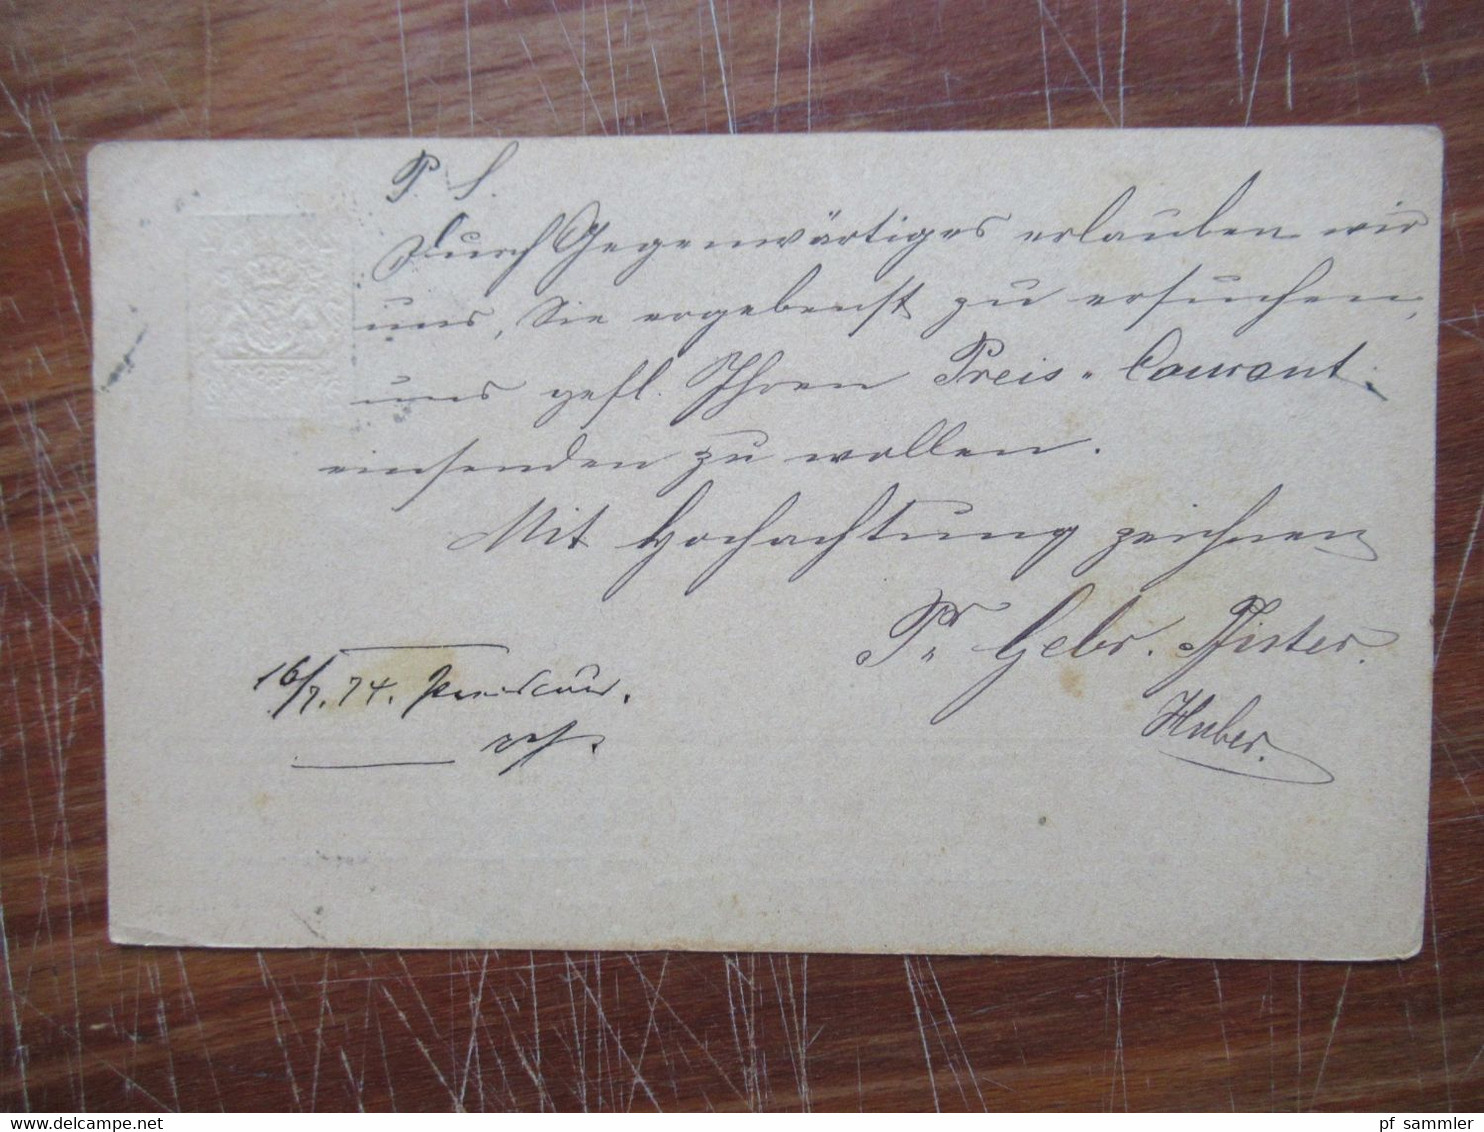 P. S.
Durch Gegenwärtiges erlauben wir
uns, Sie ergebenst zu ersuchen,
uns gefl. Ihren Preis-Courant
einsenden zu wollen.
Mit Hochachtung zeichnen
Pr. Gebr. Pfister.
Huber.
16/7.74.
www.delcampe.net
pf sammler